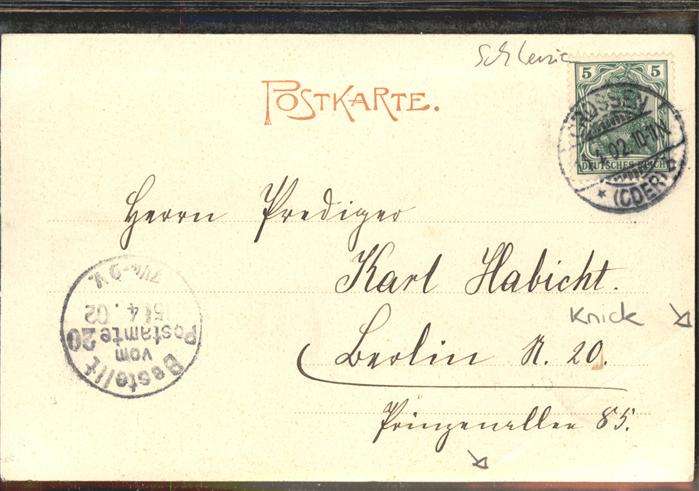 Schlesien
5 5
DEUTSCHES REICH
CROSSEN
4.02.10-11V.
* (ODER) *
POSTKARTE.
Herrn Prediger
Karl Habicht.
Knick
Berlin N. 20.
Prinzenallee 85.
Bestellt
vom
Postamte 20
4.02